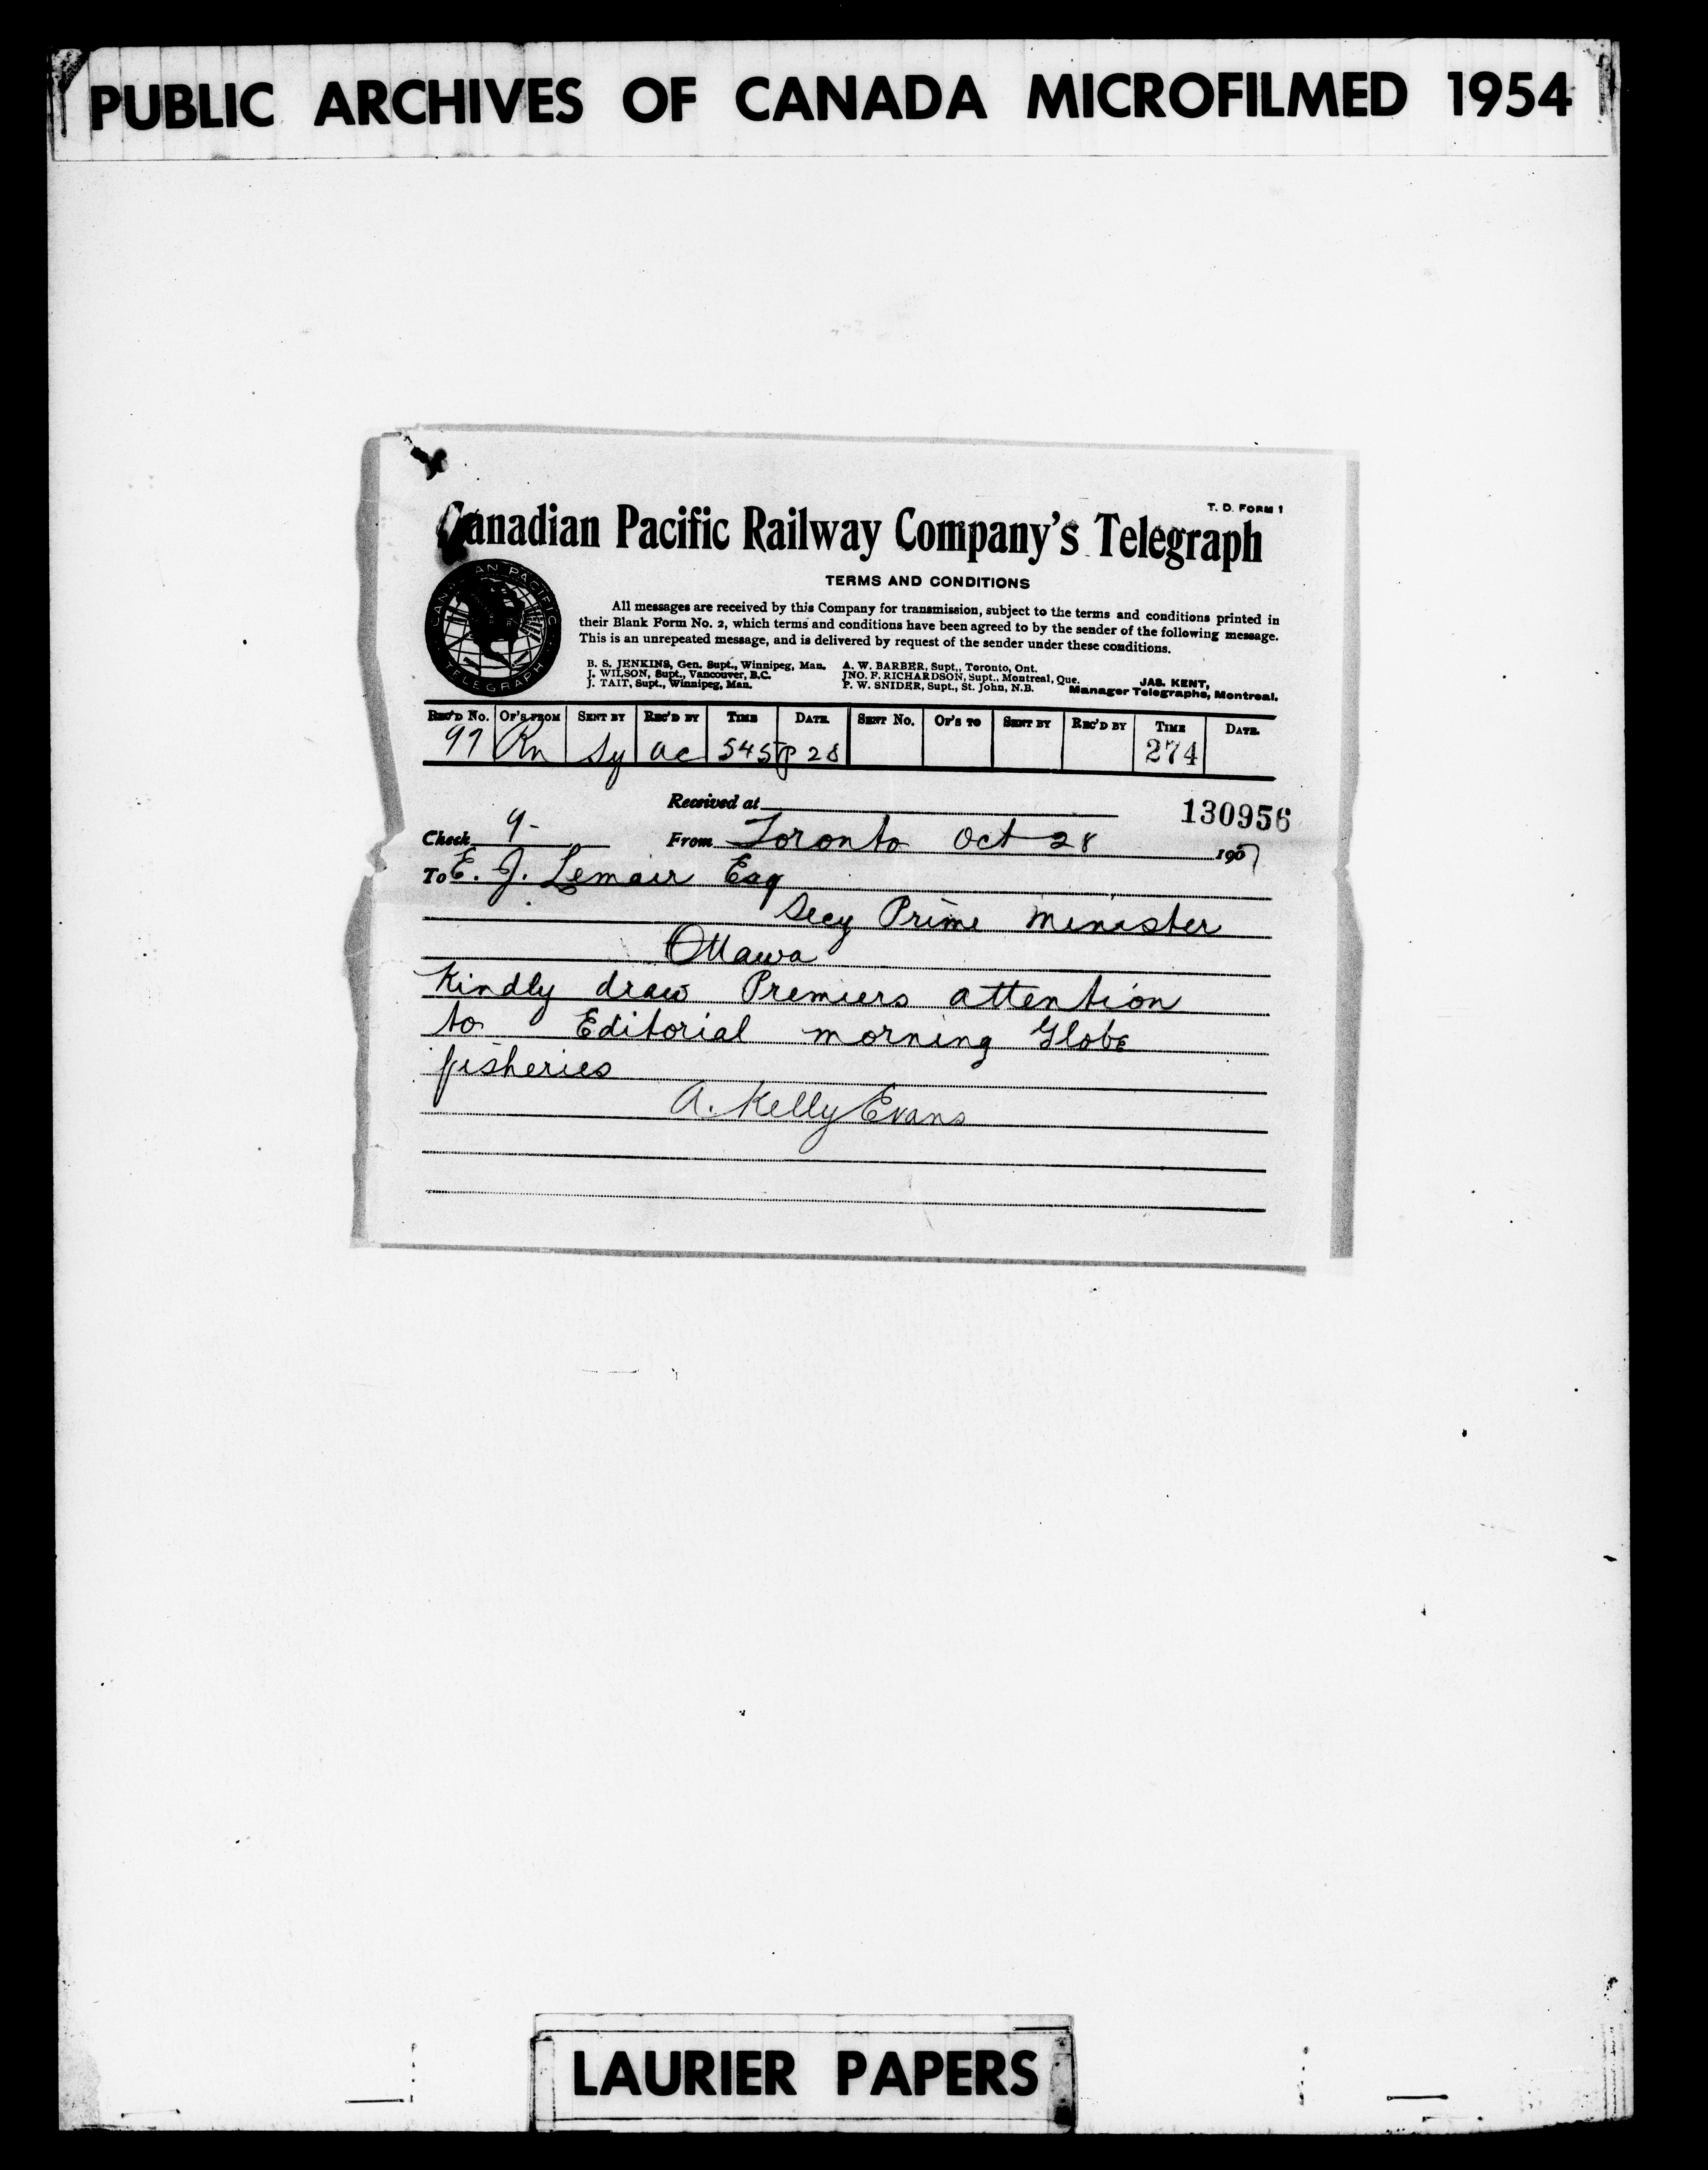 PUBLIC ARCHIVES OF CANADA MICROFILMED 1954
T. D. FORM 1
Canadian Pacific Railway Company's Telegraph
CANADIAN PACIFIC TELEGRAPH
TERMS AND CONDITIONS
All messages are received by this Company for transmission, subject to the terms and conditions printed in
their Blank Form No. 2, which terms and conditions have been agreed to by the sender of the following message.
This is an unrepeated message, and is delivered by request of the sender under these conditions.
B. S. JENKINS, Gen. Supt., Winnipeg, Man. A. W. BARBER, Supt., Toronto, Ont.
J. WILSON, Supt., Vancouver, B.C. JNO. F. RICHARDSON, Supt., Montreal, Que. JAS. KENT,
J. TAIT, Supt., Winnipeg, Man. P. W. SNIDER, Supt., St. John, N.B. Manager Telegraphs, Montreal.
REC'D NO. OF'S FROM SENT BY REC'D BY TIME DATE SENT NO. OF'S TO SENT BY REC'D BY TIME DATE
97 Rn Sy ac 545p 28 274
Received at 130956
Check 9- From Toronto Oct 28 1907
To E. J. Lemair Esq
Secy Prime Minister
Ottawa
Kindly draw Premiers attention
to Editorial morning Globe
fisheries
A. Kelly Evans
LAURIER PAPERS